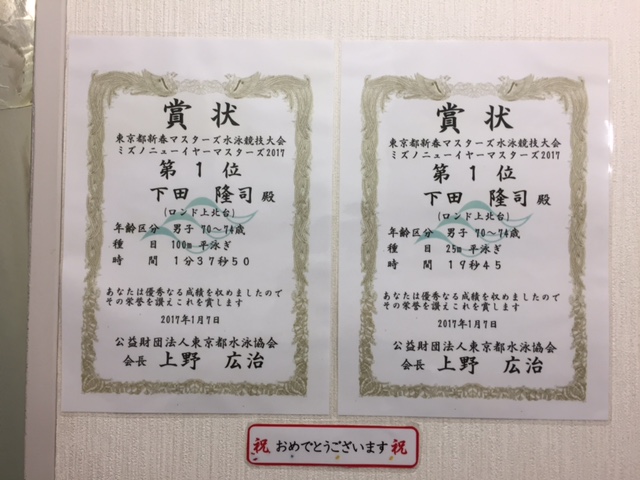 賞状
東京都新春マスターズ水泳競技大会
ミズノニューイヤーマスターズ2017
第1位
下田 隆司 殿
(ロンド上北台)
年齢区分 男子 70〜74歳
種目 100m 平泳ぎ
時間 1分37秒50
あなたは優秀なる成績を収めましたので
その栄誉を讃えこれを賞します
2017年1月7日
公益財団法人東京都水泳協会
会長 上野 広治
賞状
東京都新春マスターズ水泳競技大会
ミズノニューイヤーマスターズ2017
第1位
下田 隆司 殿
(ロンド上北台)
年齢区分 男子 70〜74歳
種目 25m 平泳ぎ
時間 19秒45
あなたは優秀なる成績を収めましたので
その栄誉を讃えこれを賞します
2017年1月7日
公益財団法人東京都水泳協会
会長 上野 広治
祝 おめでとうございます 祝